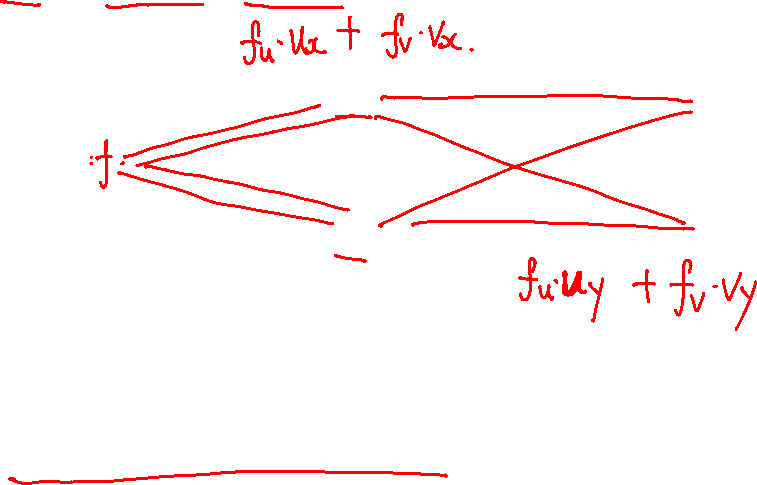 fu·ux + fv·vx.
:f:
fu·uy + fv·vy